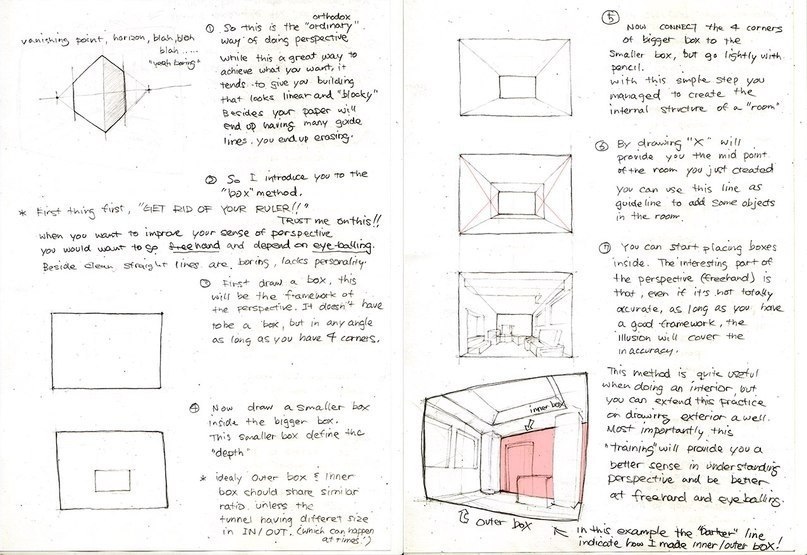 vanishing point, horizon, blah, blah
blah .....
"yeah boring"
orthodox
① So this is the "ordinary"
way of doing perspective
While this a great way to
achieve what you want, it
tends to give you building
that looks linear and "blocky"
Besides your paper will
end up having many guide
lines. you end up erasing.
② So I introduce you to the
"box" method.
* First thing first, "GET RID OF YOUR RULER!!"
TRUST me on this!!
when you want to improve your sense of perspective
you would want to go freehand and depend on eye-balling.
Beside clean straight lines are boring, lacks personality.
③ First draw a box, this
will be the framework of
the perspective. It doesn't have
to be a box, but in any angle
as long as you have 4 corners.
④ Now draw a smaller box
inside the bigger box.
This smaller box define the
"depth"
* idealy outer box & inner
box should share similar
ratio. unless the
tunnel having differet size
in IN/OUT. (which can happen
at times.)
⑤ NOW CONNECT the 4 corners
of bigger box to the
smaller box, but go lightly with
pencil.
with this simple step you
managed to create the
internal structure of a "room"
⑥ By drawing "X" will
provide you the mid point
of the room you just created
you can use this line as
guideline to add some objects
in the room.
⑦ You can start placing boxes
inside. The interesting part of
the perspective (freehand) is
that, even if it's not totally
accurate, as long as you have
a good framework, the
illusion will cover the
inaccuracy.
This method is quite useful
when doing an interior but
you can extend this practice
on drawing exterior as well.
Most importantly this
"training" will provide you a
better sense in understanding
perspective and be better
at freehand and eyeballing.
inner box
outer box
in this example the "darker" line
indicate how I made inner/outer box!